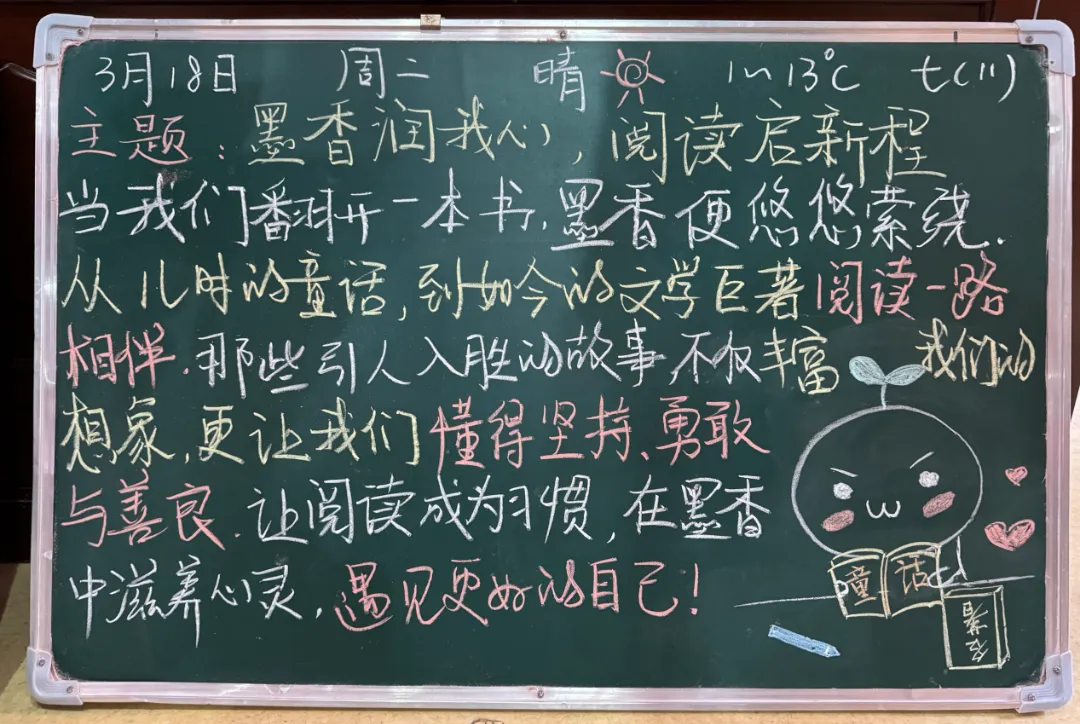 3月18日 周二 晴 1~13℃ t(11)
主题：墨香润我心，阅读启新程
当我们翻开一本书，墨香便悠悠萦绕.
从儿时的童话，到如今的文学巨著阅读一路
相伴.那些引人入胜的故事，不仅丰富 我们的
想象，更让我们懂得坚持、勇敢
与善良.让阅读成为习惯，在墨香
中滋养心灵，遇见更好的自己！
童话
名著